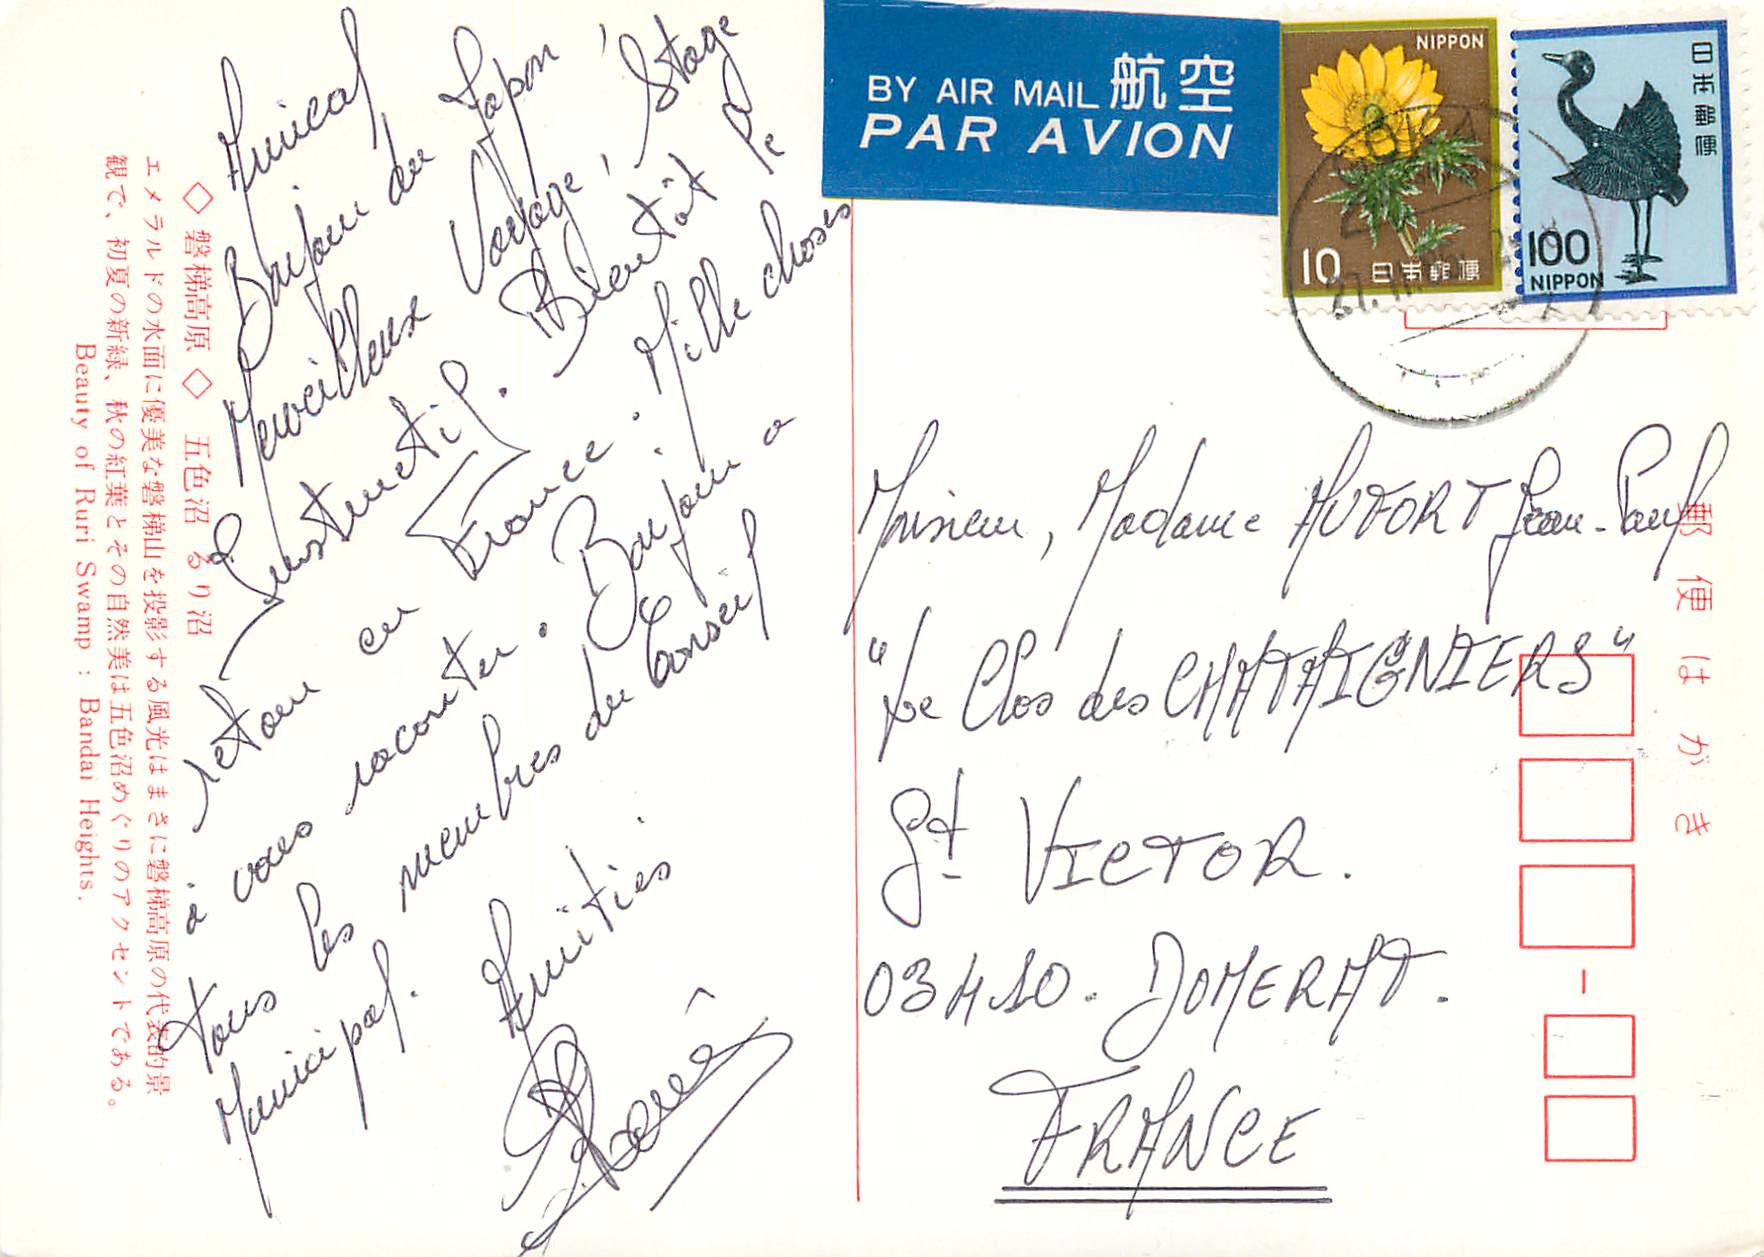 BY AIR MAIL 航空
PAR AVION
NIPPON
10 日本郵便
日本郵便
100
NIPPON
郵便はがき
◇磐梯高原◇ 五色沼 るり沼
エメラルドの水面に優美な磐梯山を投影する風光はまさに磐梯高原の代表的景
観で、初夏の新緑、秋の紅葉とその自然美は五色沼めぐりのアクセントである。
Beauty of Ruri Swamp : Bandai Heights.
Amical
Bonjour du Japon !
Merveilleux Voyage, Stage
Instructif. Bientôt le
retour en France. Mille choses
à vous raconter. Bonjour à
tous les membres du Conseil
Municipal.
Amitiés
Monsieur, Madame AUFORT Jean-Paul
"Le Clos des CHATAIGNIERS"
St VICTOR.
03410. DOMERAT.
FRANCE